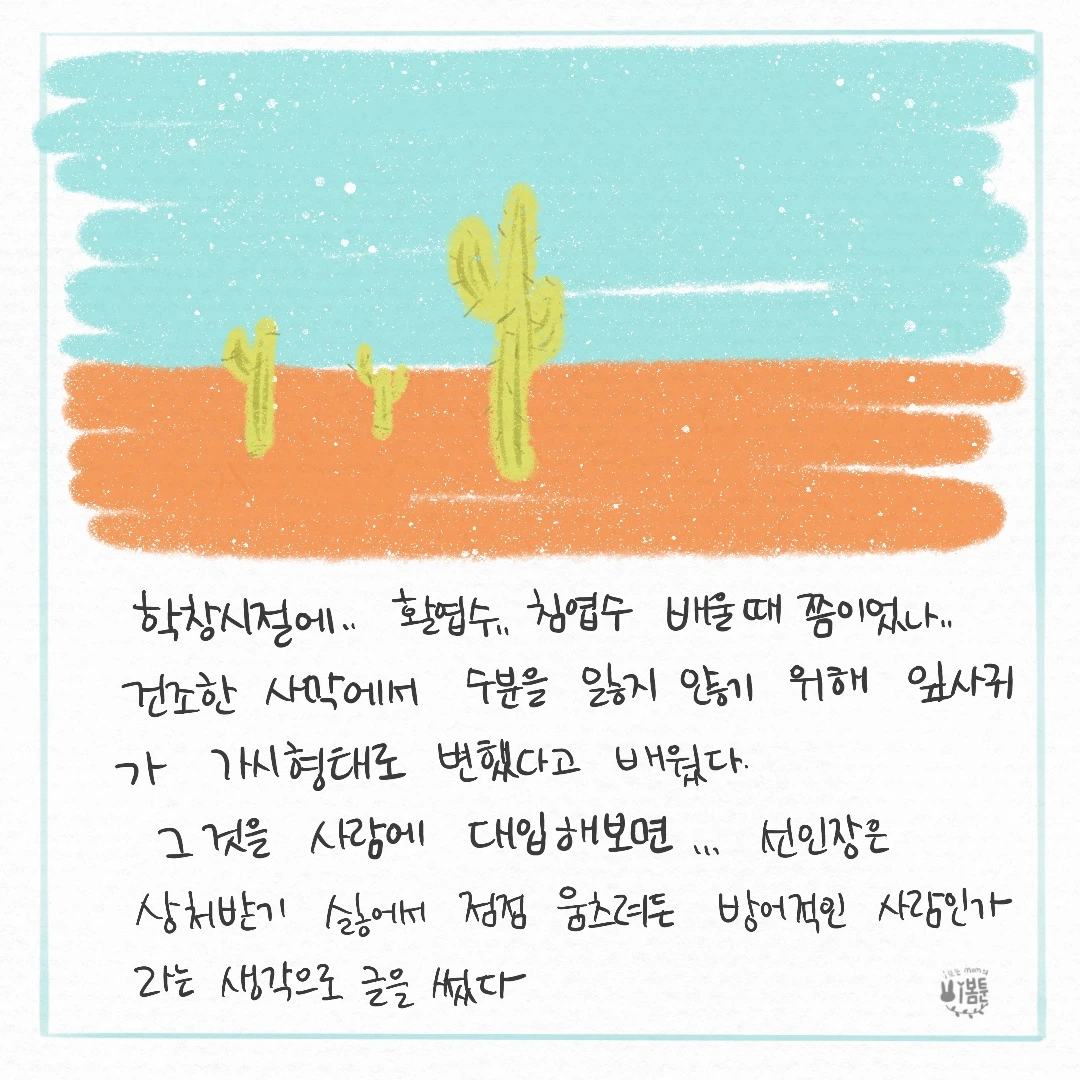 학창시절에.. 활엽수,, 침엽수 배울때 쯤이었나..
건조한 사막에서 수분을 잃지 않기 위해 잎사귀
가 가시형태로 변했다고 배웠다.
그것을 사람에 대입해보면 ... 선인장은
상처받기 싫어서 점점 움츠려든 방어적인 사람인가
라는 생각으로 글을 썼다
봄툰